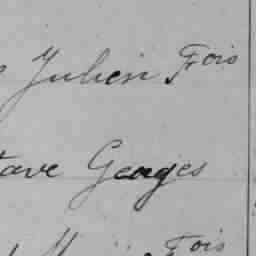 Julien Fois
tave Georges
Fois